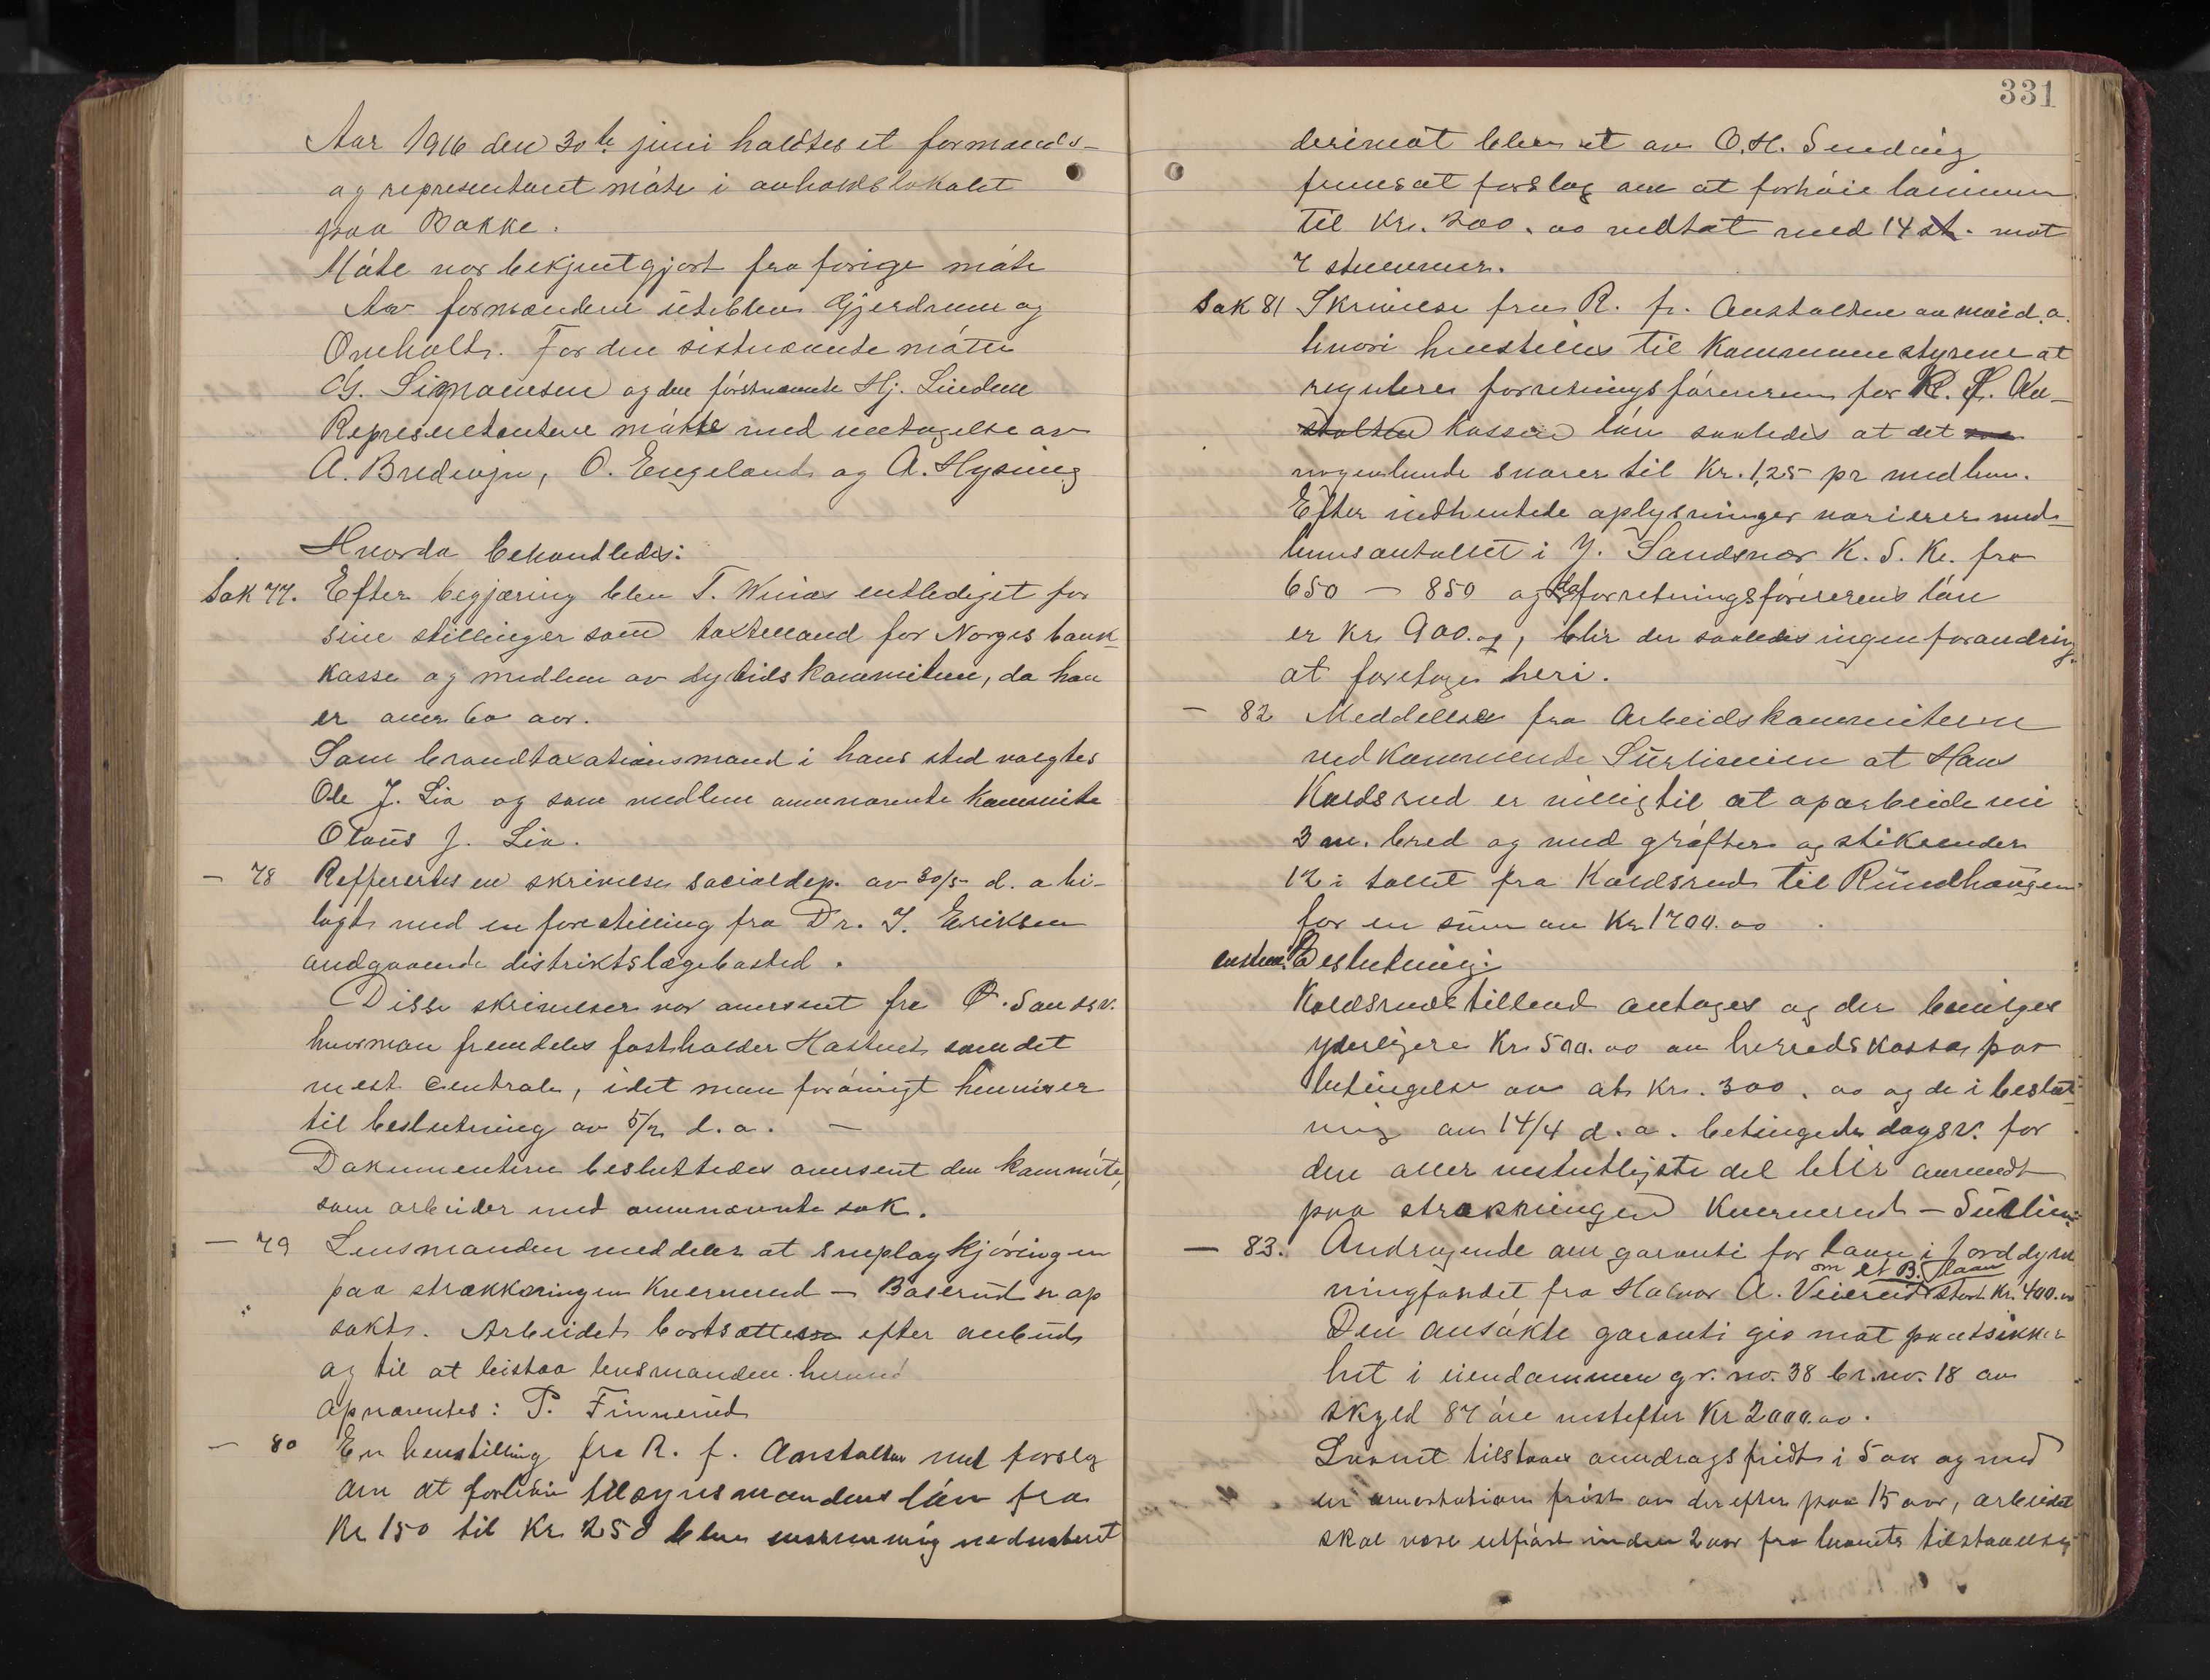 Aar 1916 den 30te juni holdtes et formands-
og representant møte i avholdslokalet
paa Bakke.
Møte var bekjentgjort fra forige møte
Av formændene uteblev Gjerdrum og
Omholt. For den sistnævnte møtte
G. Sigmansen og den førstnævnte Hj. Lindem
Representantene møtte med untagelse av
A. Bredvejn, O. Engeland og A. Hysing
Hvorda behandledes:
Sak 77. Efter begjæring blev T. Winæs entlediget for
sine stillinger som taxtmand for Norges brank-
kasse og medlem av dybids kommiteen, da han
er over 60 aar.
Som brandtaxationsmand i hans sted valgtes
Ole J. Lia og som medlem avnævnte kommite
Olaus J. Lia.
— 78 Reffererdes en skrivelse socialdep. av 30/5 d. a bi-
lagt med en forestilling fra Dr. J. Eriksen
andgaaende distriktslægebosted.
Disse skrivelser var oversent fra Ø. Sandsv.
hvorman fremdeles fastholder Hastvet som det
mest centrale, idet man forøvrigt henviser
til beslutning av 5/2 d. a. —
Dokumentene besluttedes oversent den kommite,
som arbeider med omnævnte sak.
— 79 Lensmanden meddeler at sneplogkjøringen
paa strækkningen Kvernerud — Baserud er op
sakt. Arbeidet bortsættes efter anbud
og til at bistaa lensmanden herved
opnævntes: P. Finnerud
— 80 En henstilling fra R. f. Anstalten med forslag
om at forhøie tilsynsmandens løn fra
Kr 150 til Kr 250 blev enstemmig nedvoteret
331
derimot blev et av O. H. Sending
fremsat forslag om at forhøie lønnen
til Kr. 200.00 vedtat med 14 st. mot
7 stemmer.
Sak 81 Skrivelse fra R. f. Anstalten av mai d. a.
hvori henstilles til Kommunestyrene at
regulere forretningsførerens for K. S. Ka-
stalten kassens løn saaledes at det
nogenlunde svarer til Kr. 1,25 pr medlem.
Efter indhentede oplysninger varierer med-
lemsantallet i Y. Sandsvær K. S. K. fra
650 — 850 og da forretningsførerens løn
er Kr 900.00, blir der saaledes ingen forandring
at foretage heri.
— 82 Meddelelse fra Arbeidskommiteen
vedkommende Surlivein at Hans
Koldsrud er villig til at oparbeide vei
3 m. bred og med grøfter og stikrender
12 i tallet fra Koldsrud til Rundhaugen
for en sum av Kr 1700.00
enstem. Beslutning:
Koldsruds tilbud antages og der bevilges
yderligere Kr 500.00 av herredskassa paa
betingelse av at Kr. 300.00 og de i beslut-
ning av 14/4 d. a. betingede dagsv. for
den aller vesentligste del blir anvendt
paa strækningen Kvernerud — Surlien
— 83. Andragende om garanti for laan i Jorddyrk
om et B. laan
ningfondet fra Halvor A. Veierud stort Kr. 400.00
Den ansøkte garanti gis mot pantsikker
het i eiendommen gr. no. 38 br. no. 18 av
skyld 87 øre mstefter Kr 2000.00.
Laanet tilstaaes avdragsfridt i 5 aar og med
en amortations frist av derefter paa 15 aar, arbeidet
skal være utført inden 2 aar fra laanets tilstaaelse